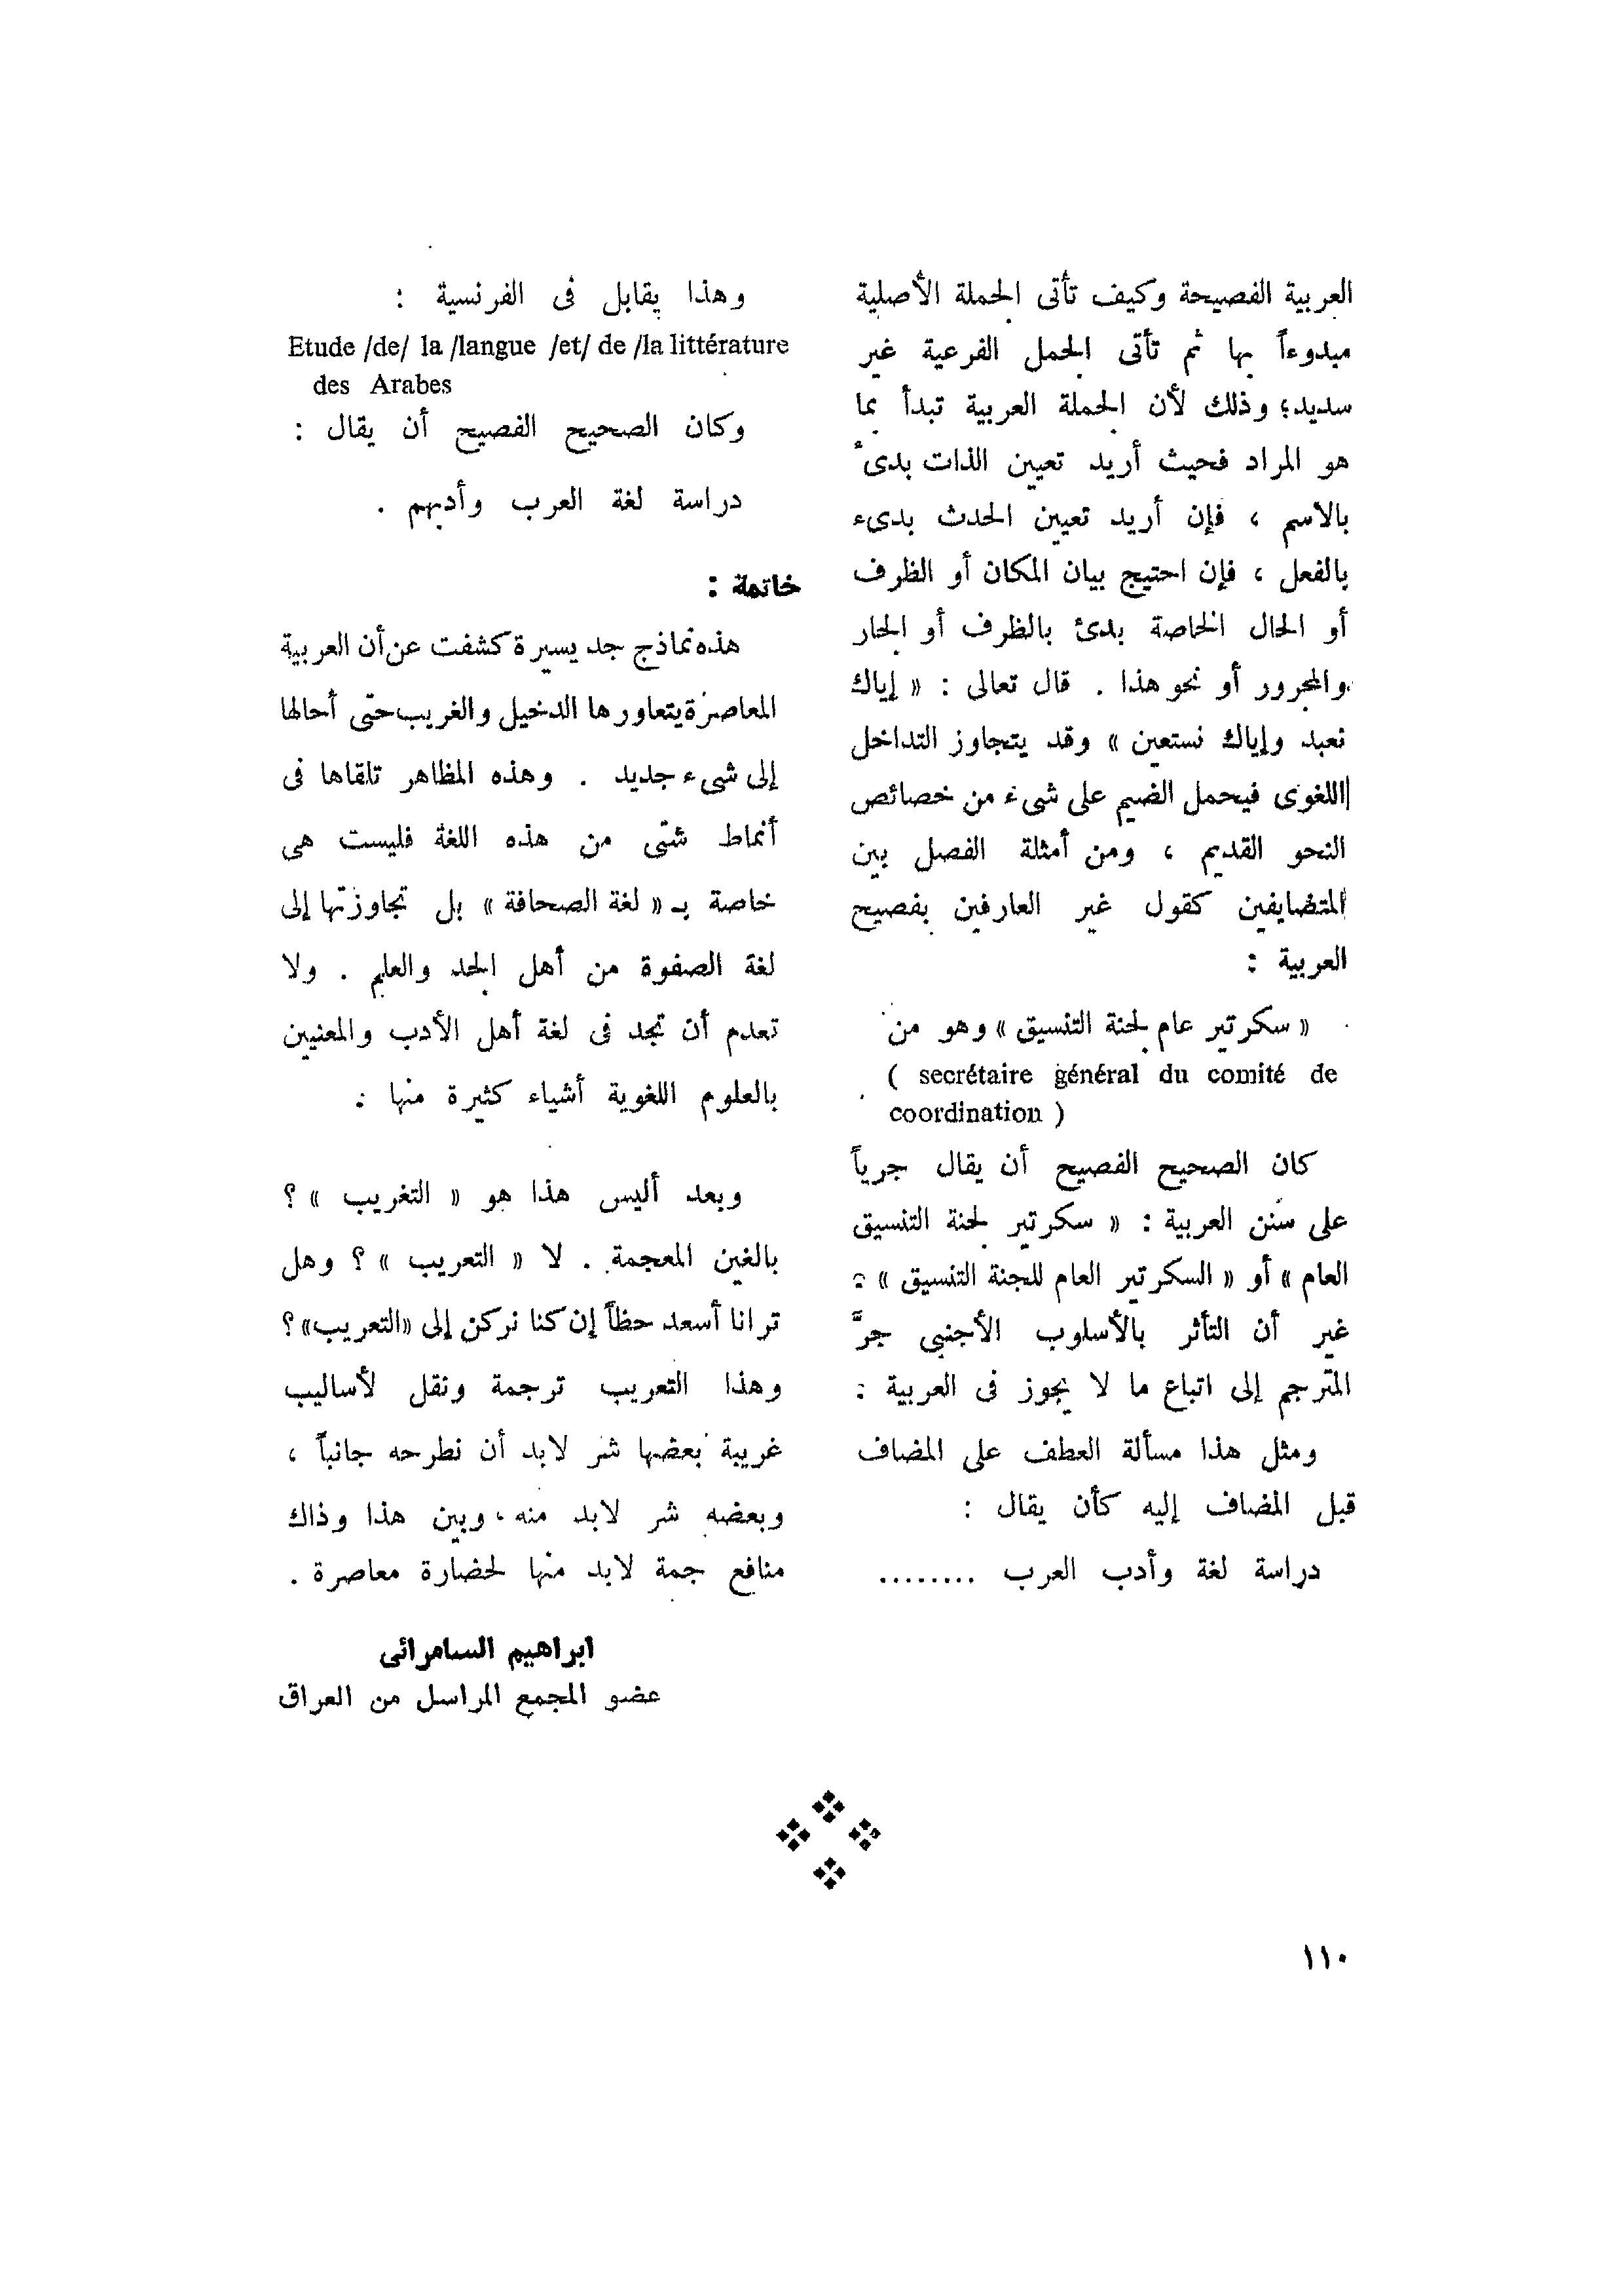 العربية الفصيحة وكيف تأتى الجملة الأصلية
مبدوءاً بها ثم تأتى الجمل الفرعية غير
سديد؛ وذلك لأن الجملة العربية تبدأ بما
هو المراد فحيث أريد تعيين الذات بدىء
بالاسم ، فإن أريد تعيين الحدث بدىء
بالفعل ، فإن احتيج بيان المكان أو الظرف
أو الحال الخاصة بدئ بالظرف أو الجار
والمجرور أو نحو هذا . قال تعالى : « إياك
نعبد وإياك نستعين » وقد يتجاوز التداخل
اللغوى فيحمل الضيم على شىء من خصائص
النحو القديم ، ومن أمثلة الفصل بين
المتضايفين كقول غير العارفين بفصيح
العربية :
« سكرتير عام لجنة التنسيق » وهو من
( secrétaire général du comité de
coordination )
كان الصحيح الفصيح أن يقال جرياً
على سَنن العربية : « سكرتير لجنة التنسيق
العام » أو « السكرتير العام للجنة التنسيق » .
غير أن التأثر بالأسلوب الأجنبى جرَّ
المترجم إلى اتباع ما لا يجوز فى العربية .
ومثل هذا مسألة العطف على المضاف
قبل المضاف إليه كأن يقال :
دراسة لغة وأدب العرب ........
وهذا يقابل فى الفرنسية :
Etude /de/ la /langue /et/ de /la littérature
des Arabes
وكان الصحيح الفصيح أن يقال :
دراسة لغة العرب وأدبهم .
خاتمة :
هذه نماذج جد يسيرة كشفت عن أن العربية
المعاصرة يتعاورها الدخيل والغريب حتى أحالها
إلى شىء جديد . وهذه المظاهر تلقاها فى
أنماط شتى من هذه اللغة فليست هى
خاصة بـ « لغة الصحافة » بل تجاوزتها إلى
لغة الصفوة من أهل الجد والعلم . ولا
تعدم أن تجد فى لغة أهل الأدب والمعنيين
بالعلوم اللغوية أشياء كثيرة منها .
وبعد أليس هذا هو « التغريب » ؟
بالغين المعجمة . لا « التعريب » ؟ وهل
ترانا أسعد حظاً إن كنا نركن إلى «التعريب» ؟
وهذا التعريب ترجمة ونقل لأساليب
غريبة بعضها شر لابد أن نطرحه جانباً ،
وبعضه شر لابد منه ، وبين هذا وذاك
منافع جمة لابد منها لحضارة معاصرة .
ابراهيم السامرائى
عضو المجمع المراسل من العراق
١١٠